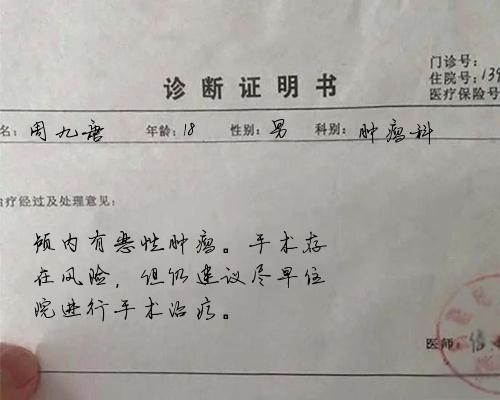 门诊号：
诊断证明书
住院号：139
医疗保险号
名：周九唐 年龄：18 性别：男 科别：肿瘤科
治疗经过及处理意见：
颅内有恶性肿瘤。手术存
在风险，但仍建议尽早住
院进行手术治疗。
医师：